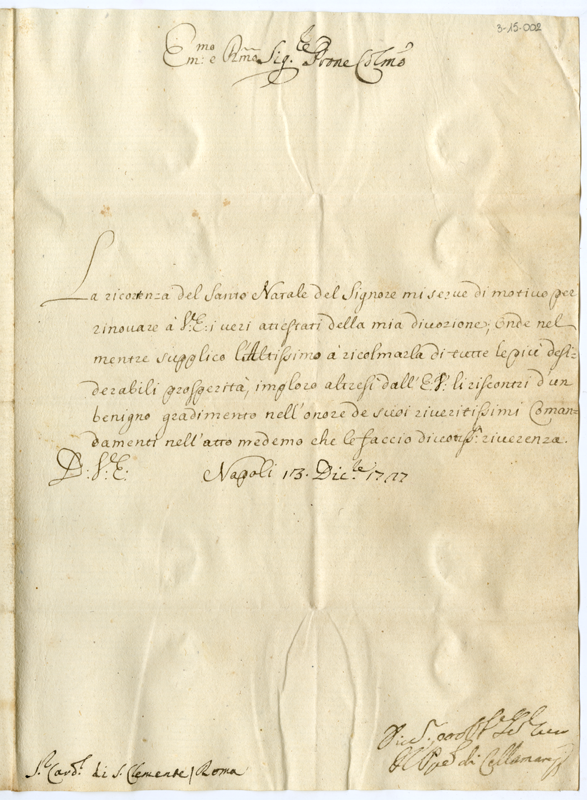 3-15-002
Em:mo e Rmo Sig.re Prone Colmo
La ricorenza del Santo Natale del Signore mi serve di motivo per
rinovare à V.E: i veri attestati della mia divozione; onde nel
mentre supplico l'Altissimo à ricolmarla di tutte le più desi-
derabili prosperità, imploro altresi dall'E.V: li riscontri d'un
benigno gradimento nell'onore de suoi riveritissimi Coman-
damenti nell'atto medemo che le faccio divotiss.a riverenza.
D: V.E: Napoli 13. Dic.bre 1727
S.r Card.l di S. Clemente / Roma
Il Ppe di Collamare